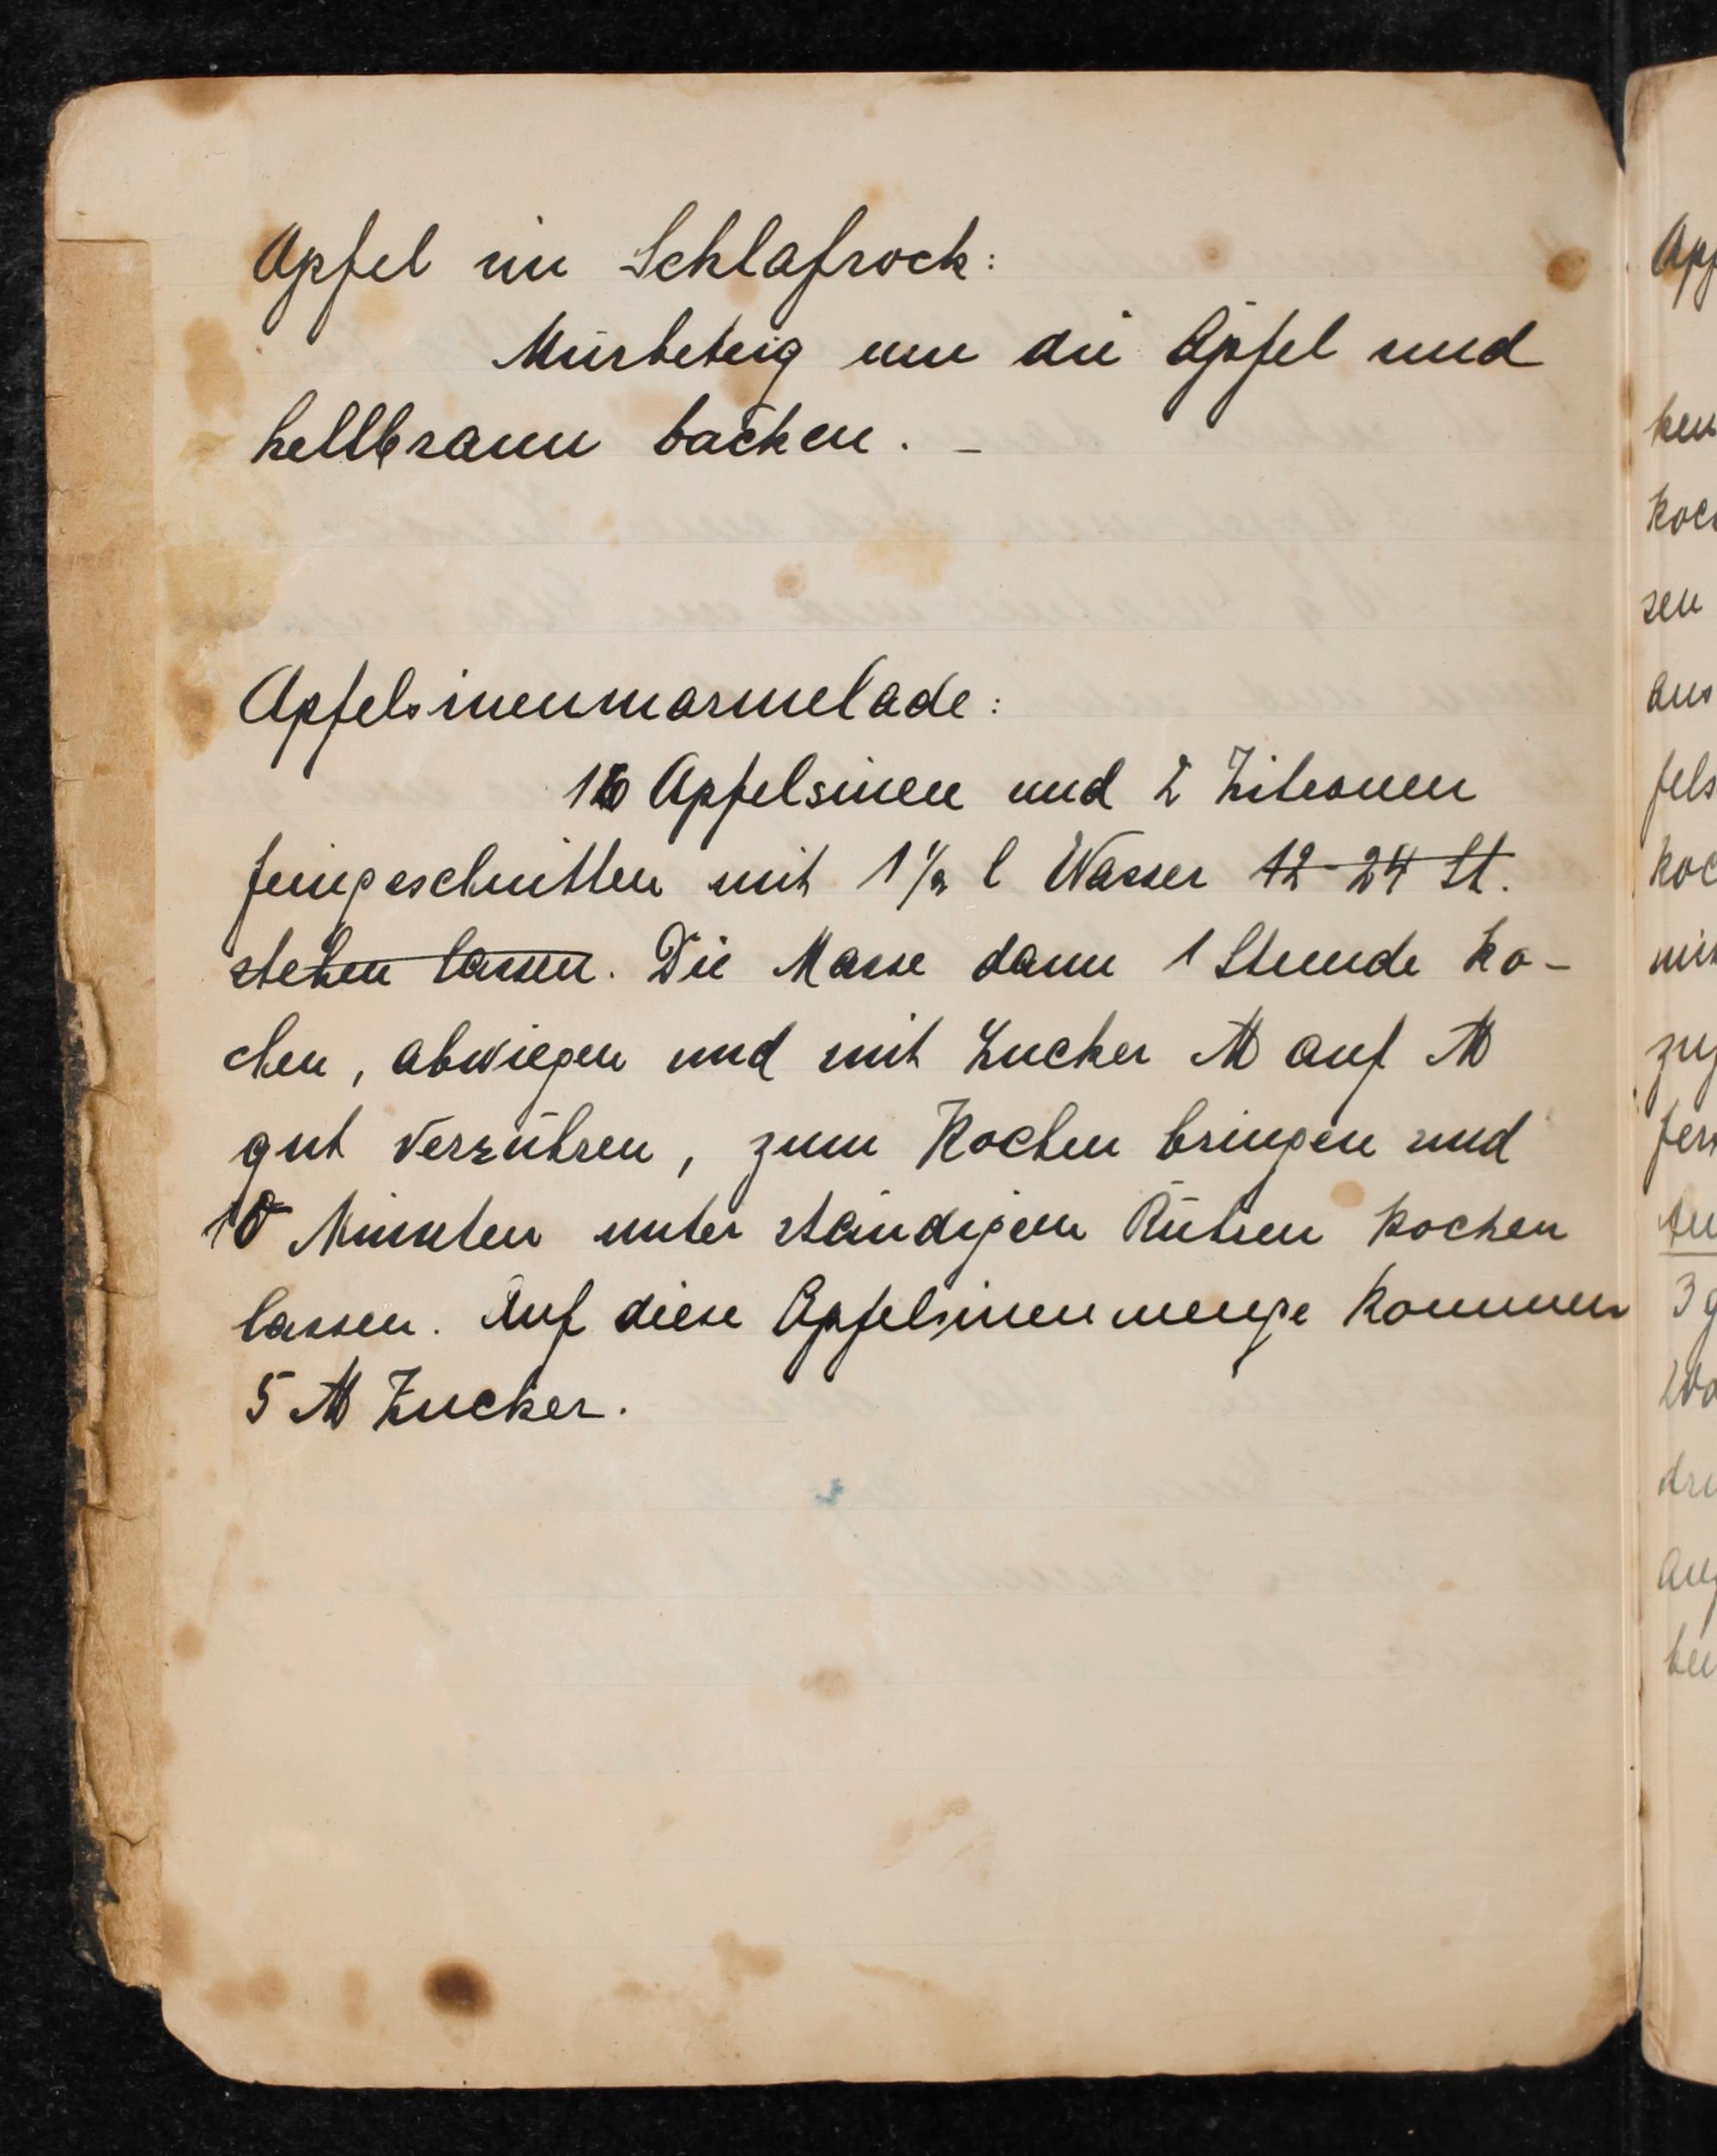 Apfel im Schlafrock:
Mürbeteig um die Äpfel und
hellbraun backen. -
Apfelsinenmarmelade:
10 Apfelsinen und 2 Zitronen
feingeschnitten mit 1 1/2 l Wasser 12-24 St.
stehen lassen. Die Masse dann 1 Stunde ko-
chen, abwiegen und mit Zucker ℔ auf ℔
gut verrühren, zum Kochen bringen und
10 Minuten unter ständigem Rühren kochen
lassen. Auf diese Apfelsinenmenge kommen
5 ℔ Zucker.
Apf
ken
koc
zen
aus
fels
koc
mit
zug
fer
3 g